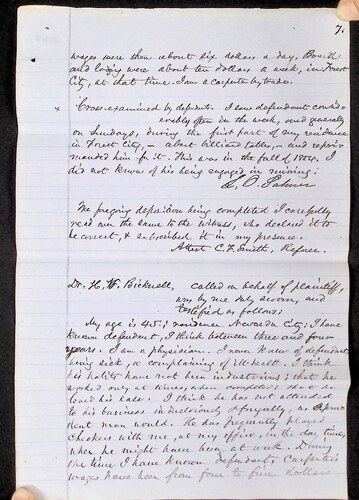 7.
wages were then about six dollars a day. Board
and lodging were about ten dollars a week, in Forest
City, at that time. I am a carpenter by trade.
x Cross-examined by defendant. I saw defendant consid-
erably often in the week, and generally
on Sundays, during the first part of my residence
in Forest City, – about billiard tables, – and repri-
manded him for it. This was in the fall of 1854. I
did not know of his being engaged in mining.
The foregoing deposition being completed I carefully
read over the same to the witness, who declared it to
be correct, & subscribed it in my presence.
Attest C. F. Smith, Referee.
Dr. H. W. Bicknell, called on behalf of plaintiff,
was by me duly sworn, and
testified as follows:
My age is 45; residence Nevada City; I have
known defendant, I think between three and four
years. I am a physician. I never knew of defendant
being sick, or complaining of ill-health. I think
his habits have not been industrious; that he
worked only at times, when completely
loved his ease. I think he has not attended
to his business industriously & frugally, as a pru-
dent man would. He has frequently played
checkers with me, at my office, in the day time,
when he might have been at work. During
the time I have known defendant, Carpenter's
wages have been from four to five dollars